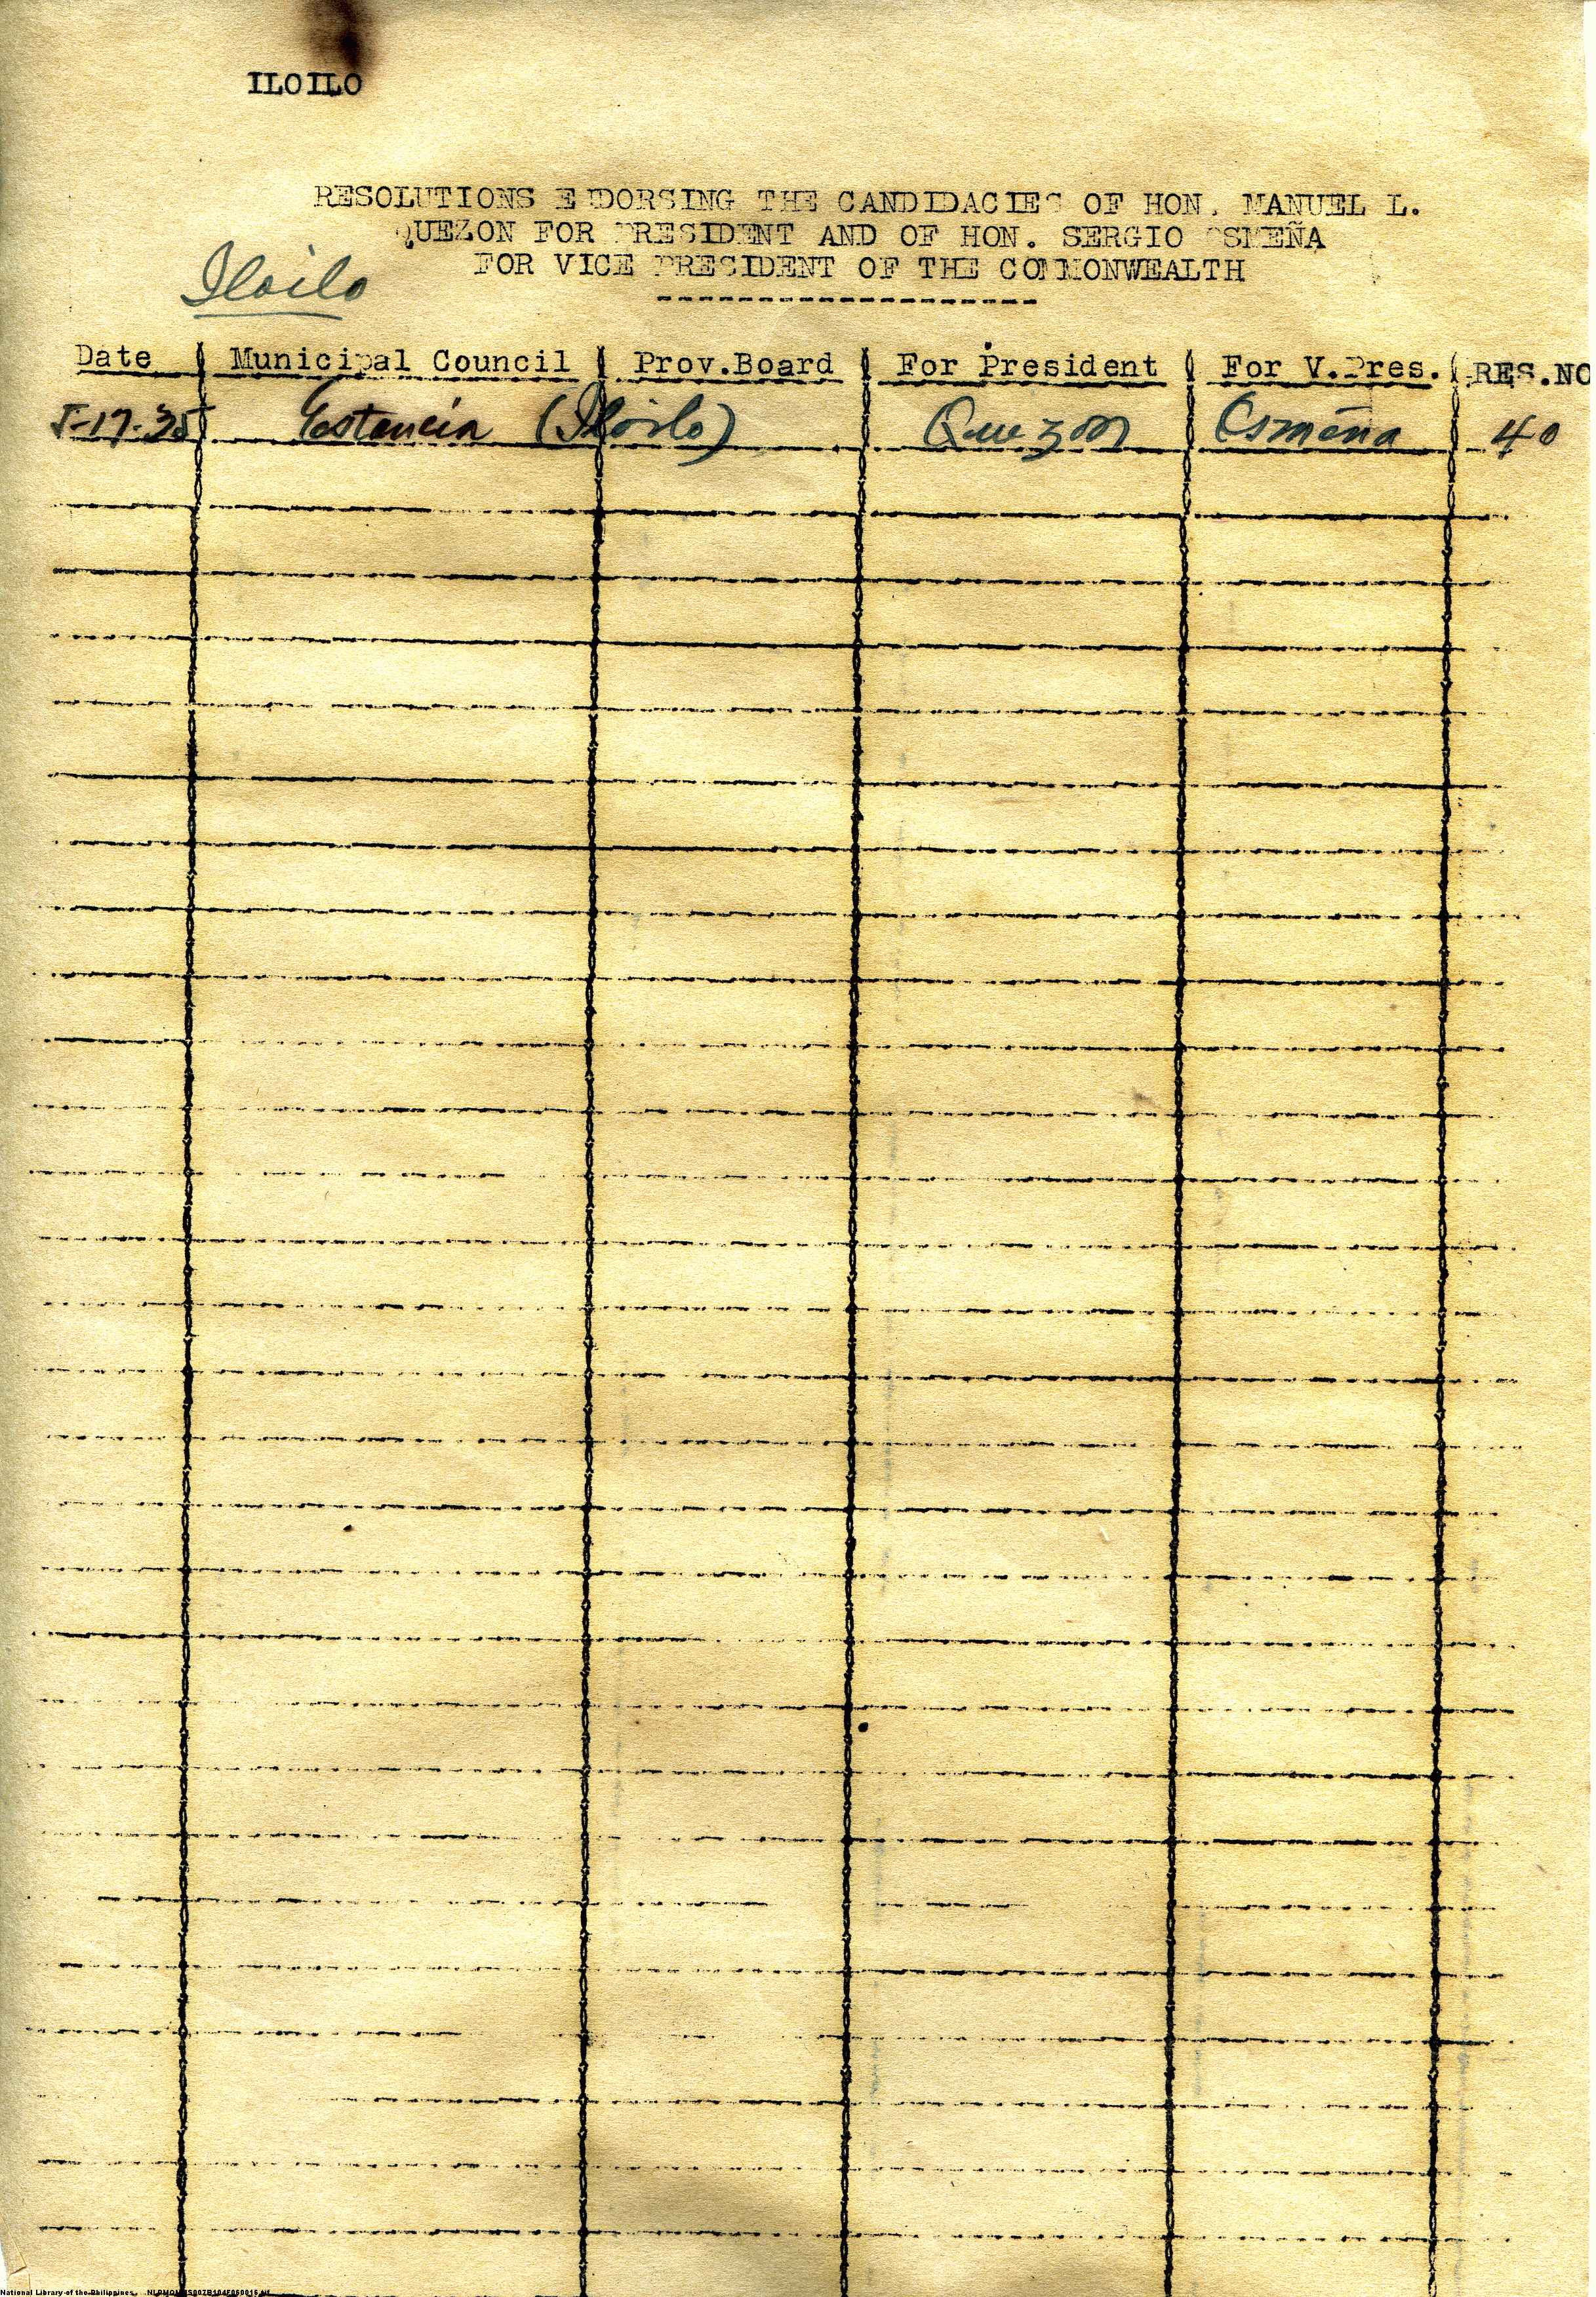 ILOILO
RESOLUTIONS ENDORSING THE CANDIDACIES OF HON. MANUEL L.
QUEZON FOR PRESIDENT AND OF HON. SERGIO OSMEÑA
FOR VICE PRESIDENT OF THE COMMONWEALTH
Iloilo
Date Municipal Council Prov.Board For President For V.Pres. RES.NO
5-17-35 Estancia (Iloilo) Quezon Osmeña 40
National Library of the Philippines